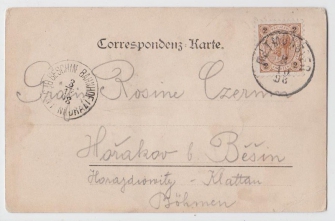 Correspondenz-Karte.
Fräulein Rosine Czerni
Hořakov b Běšin
Horazdiowitz - Klattau
Böhmen
2
2